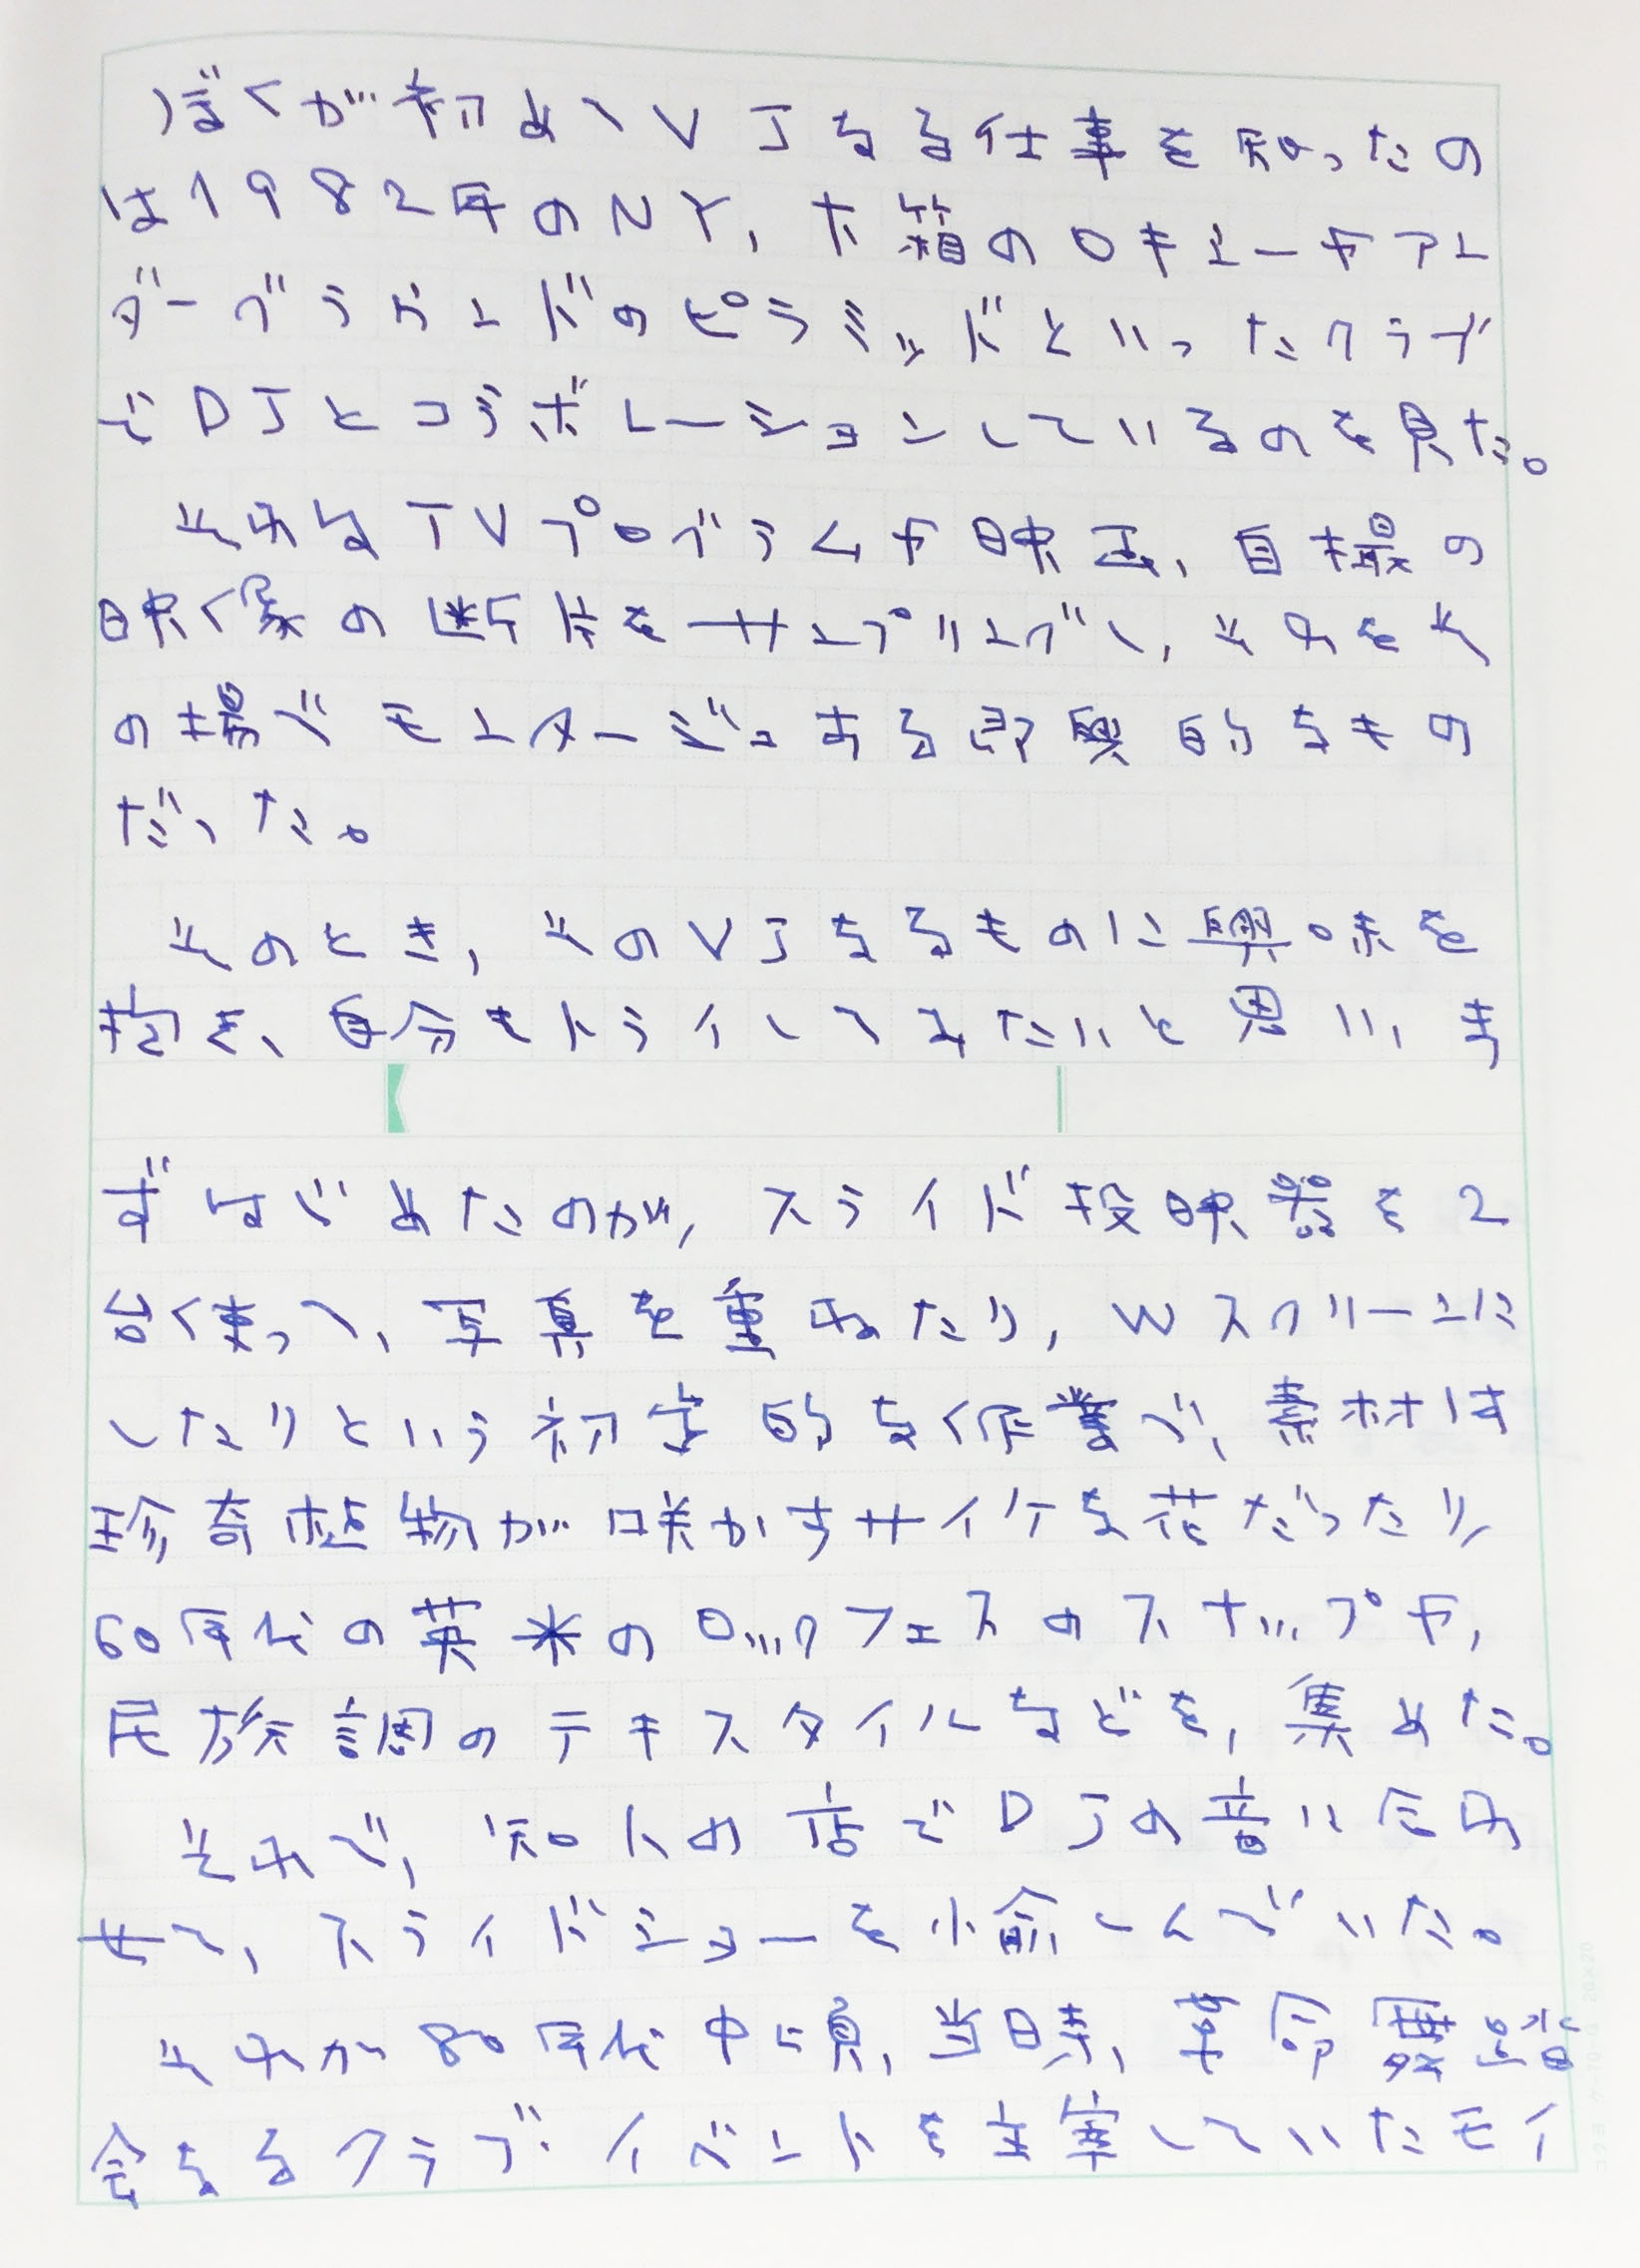 ぼくが初めてVJなる仕事を知ったの
は1982年のNY、大箱のロキシーやアン
ダーグラウンドのピラミッドといったクラブ
でDJとコラボレーションしているのを見た。
それはTVプログラムや映画、自撮の
映像の断片をサンプリングし、それをそ
の場でモンタージュする即興的なもの
だった。
そのとき、そのVJなるものに興味を
抱き、自分もトライしてみたいと思い、ま
ずはじめたのが、スライド投映器を2
台使って、写真を重ねたり、Wスクリーンに
したりという初歩的な作業で、素材は
珍奇植物が咲かすサイケな花だったり
60年代の英米のロックフェスのスナップや、
民族調のテキスタイルなどを、集めた。
それで、知人の店でDJの音に合わ
せて、スライドショーを愉しんでいた。
それが80年代中に頃、当時、革命舞踏
会なるクラブ・イベントを主宰していたモイ